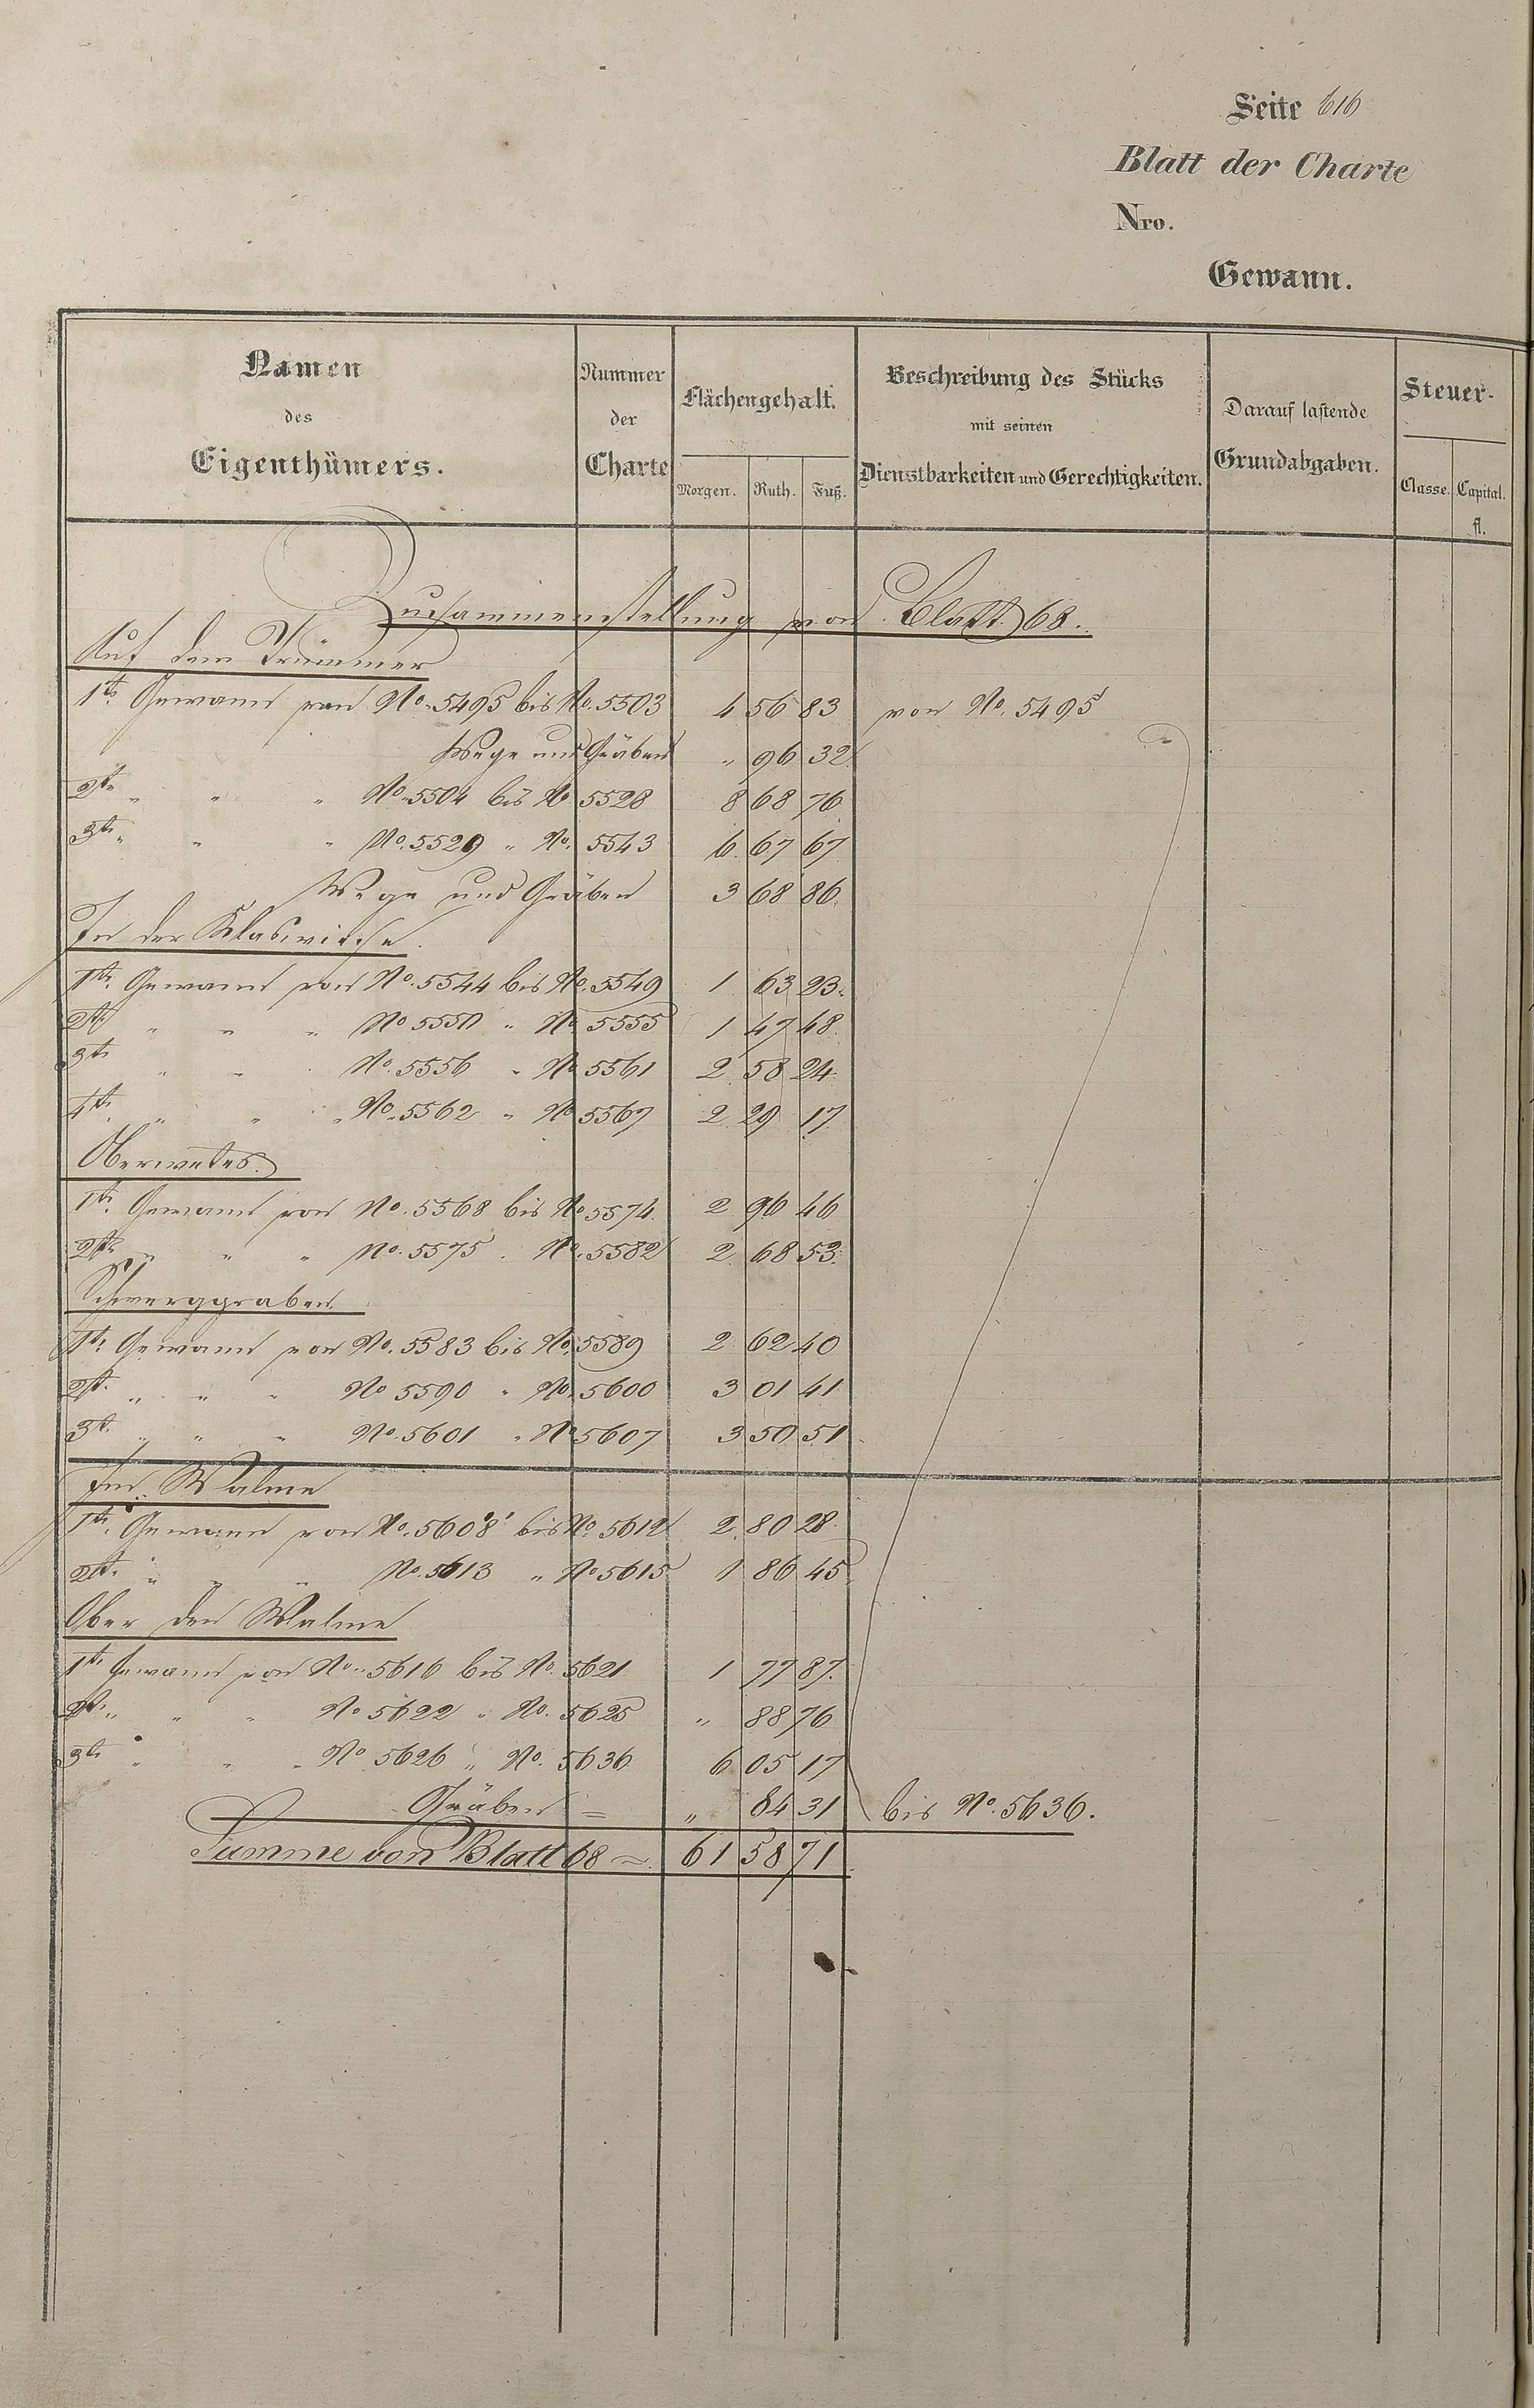 Seite 616
Blatt der Charte
Nro.
Gewann.
Namen des Eigenthümers.
Nummer der Charte
Flächengehalt.
Morgen. Ruth. Fuß.
Beschreibung des Stücks mit seinen Dienstbarkeiten und Gerechtigkeiten.
Darauf lastende Grundabgaben.
Steuer-
Classe. Capital. fl.
Zusammenstellung von Blatt 68.
Auf dem Trümmer
1te. Gewann von No. 5495 bis No. 5503 4 56 83 von No. 5495
Wege und Gräben " 96 32
2te " " " No. 5504 bis No 5528 8 68 76
3te " " " No. 5529 " No. 5543 6 67 67
Wege und Gräben 3 68 86
In der Klaswiese.
1te. Gewann von No. 5544 bis No. 5549 1 63 23
2te " " " No 5550 " No 5555 1 47 48
3te " " " No. 5556 " No 5561 2 58 24
4te " " " No. 5562 " No 5567 2 29 17
1te. Gewann von No. 5568 bis No 5574 2 96 46
2te " " " No. 5575 " No. 5582 2 68 53
Schwerggraben
1te Gewann von No. 5583 bis No. 5589 2 62 40
2te " " " No 5590 " No. 5600 3 01 41
3te " " " No. 5601 " No 5607 3 50 51
Im Walme
1te. Gewann von No. 5608 bis No. 5612 2 80 28
2te " " " No. 5613 " No 5615 1 86 45
Ober den Walme
1te Gewann von No. 5616 bis No. 5621 1 77 87
2te " " " No 5622 " No. 5625 " 88 76
3te " " " No 5626 " No. 5636 6 05 17
Gräben = " 84 31 bis No. 5636.
Summe von Blatt 68 = 61 58 71